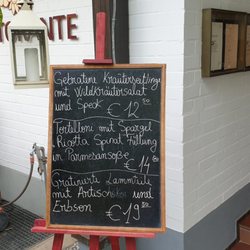 Gebratene Kräuterseitlinge
mit Wildkräutersalat
und Speck € 12 50
Tortelloni mit Spargel
Rigotta Spinat Füllung
in Parmesansoße € 14 50
Gratinierte Lammfilet
mit Artischoken und
Erbsen € 19 50